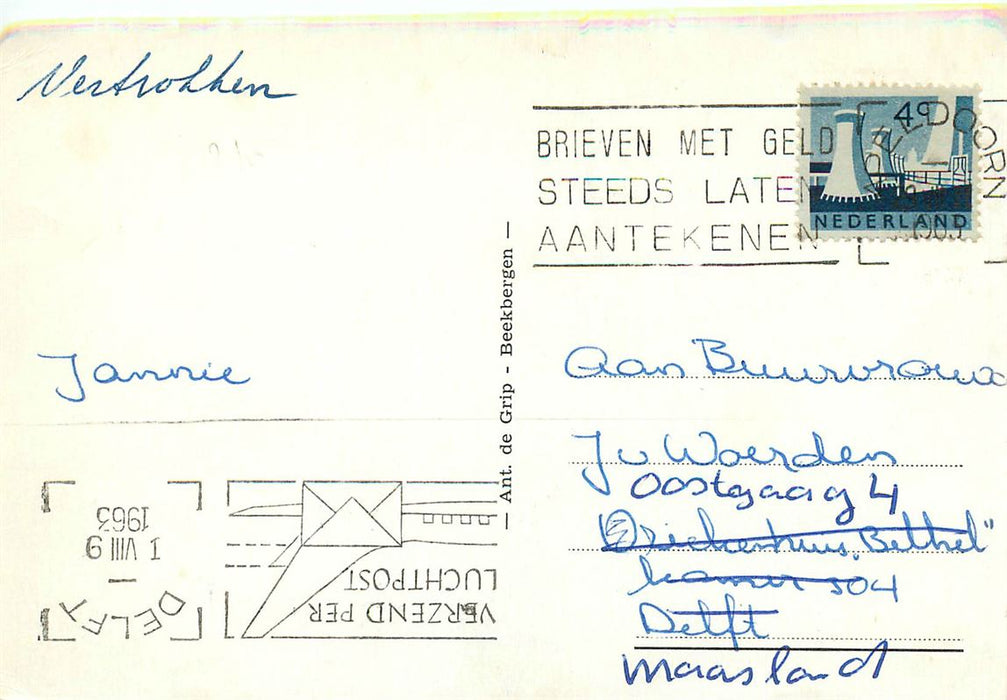 Vertrokken
BRIEVEN MET GELD
STEEDS LATEN
AANTEKENEN
4c
NEDERLAND
APELDOORN
1963
Jannie
Ant. de Grip - Beekbergen
Aan Buurvrouw
J v Woerden
Oostgaag 4
Ziekenhuis "Bethel"
kamer 304
Delft
Maasland
DELFT
1 VIII 9
1963
VERZEND PER
LUCHTPOST